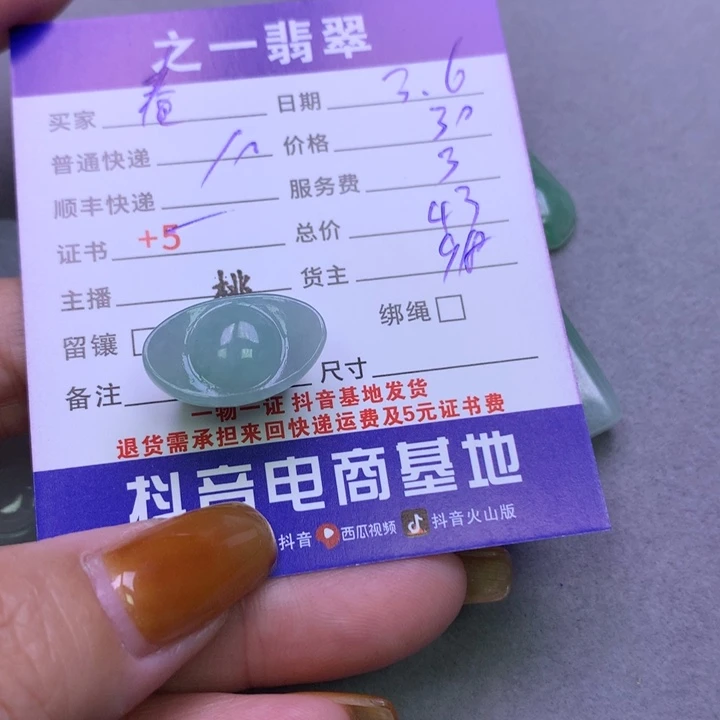 之一翡翠
买家 春 日期 3.6
普通快递 价格 30
顺丰快递 服务费 3
证书 +5 总价 43
主播 桃 货主 98
留镶 绑绳
备注 尺寸
一物一证 抖音基地发货
退货需承担来回快递运费及5元证书费
抖音电商基地
抖音 西瓜视频 抖音火山版